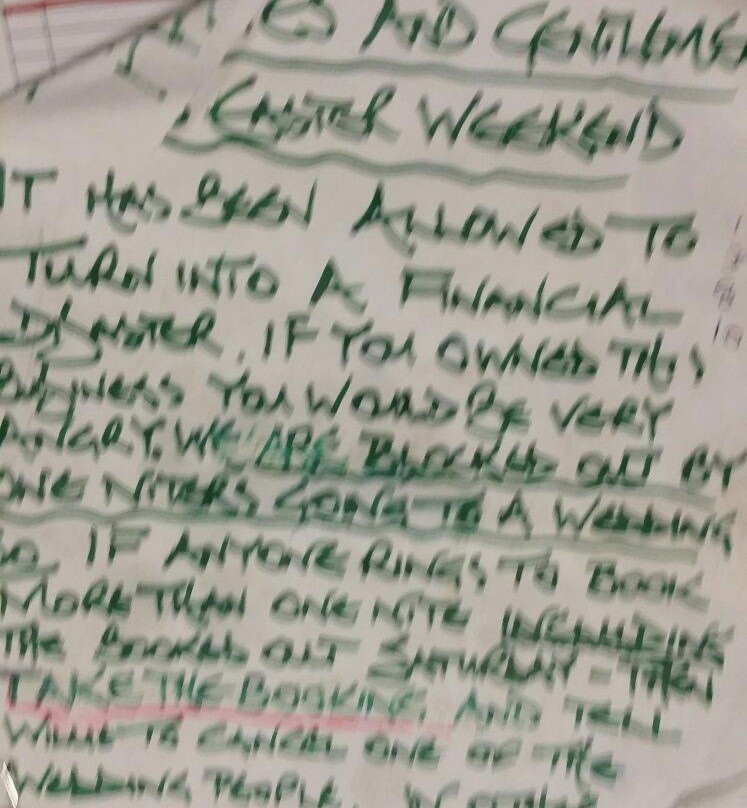 AND GENTLEME
EASTER WEEKEND
IT HAS BEEN ALLOWED TO
TURN INTO A FINANCIAL
DISASTER. IF YOU OWNED THIS
BUSINESS YOU WOULD BE VERY
ANGRY. WE ARE BLOCKED OUT BY
ONE NITERS GOING TO A WEDDING
SO IF ANYONE RINGS TO BOOK
MORE THAN ONE NITE INCLUDING
THE BOOKED OUT SATURDAY - THEN
TAKE THE BOOKING AND TELL
WILLIE TO CANCEL ONE OF THE
WEDDING PEOPLE.